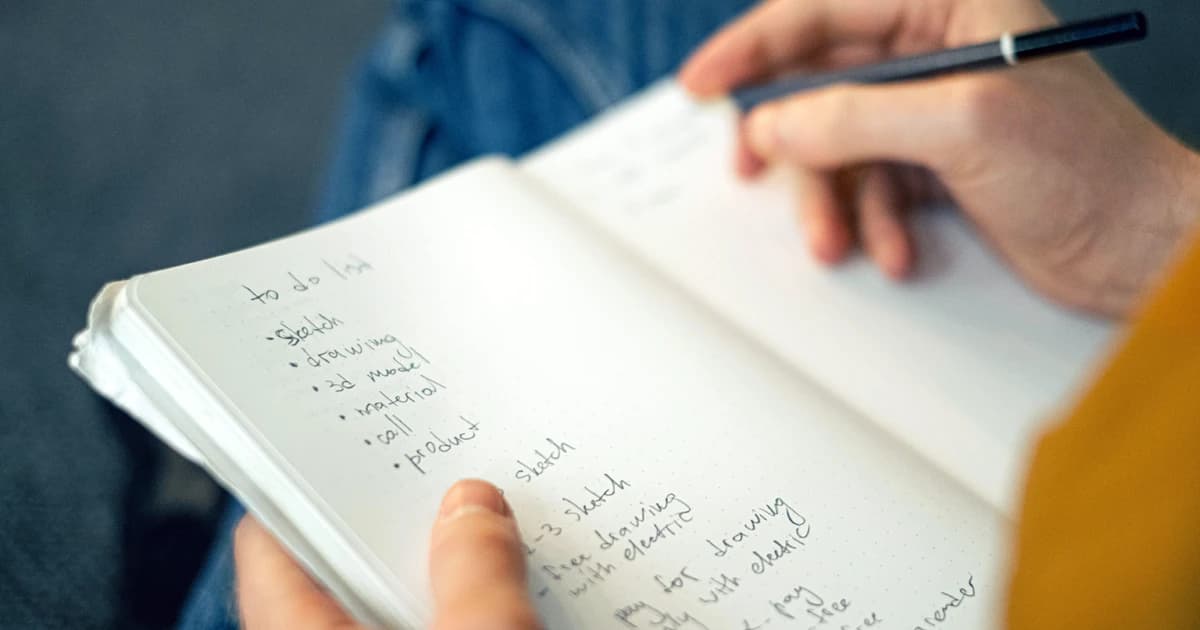 to do list
• sketch
• drawing
• 3d model
• material
• call
• product
sketch
-3 sketch
- free drawing
with electric
pay for drawing
with electric
- pay
free
render